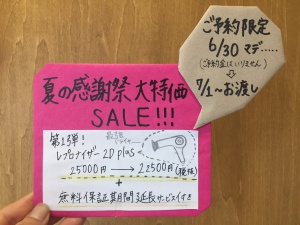 夏の感謝祭 大特価
SALE!!!
第2弾!
レプロナイザー 2D plus
25000円 → 22500円 (税抜)
+
無料保証期間延長サービス付き
ご予約限定
6/30 マデ.....
(ご予約金はいりません)
7/1〜お渡し